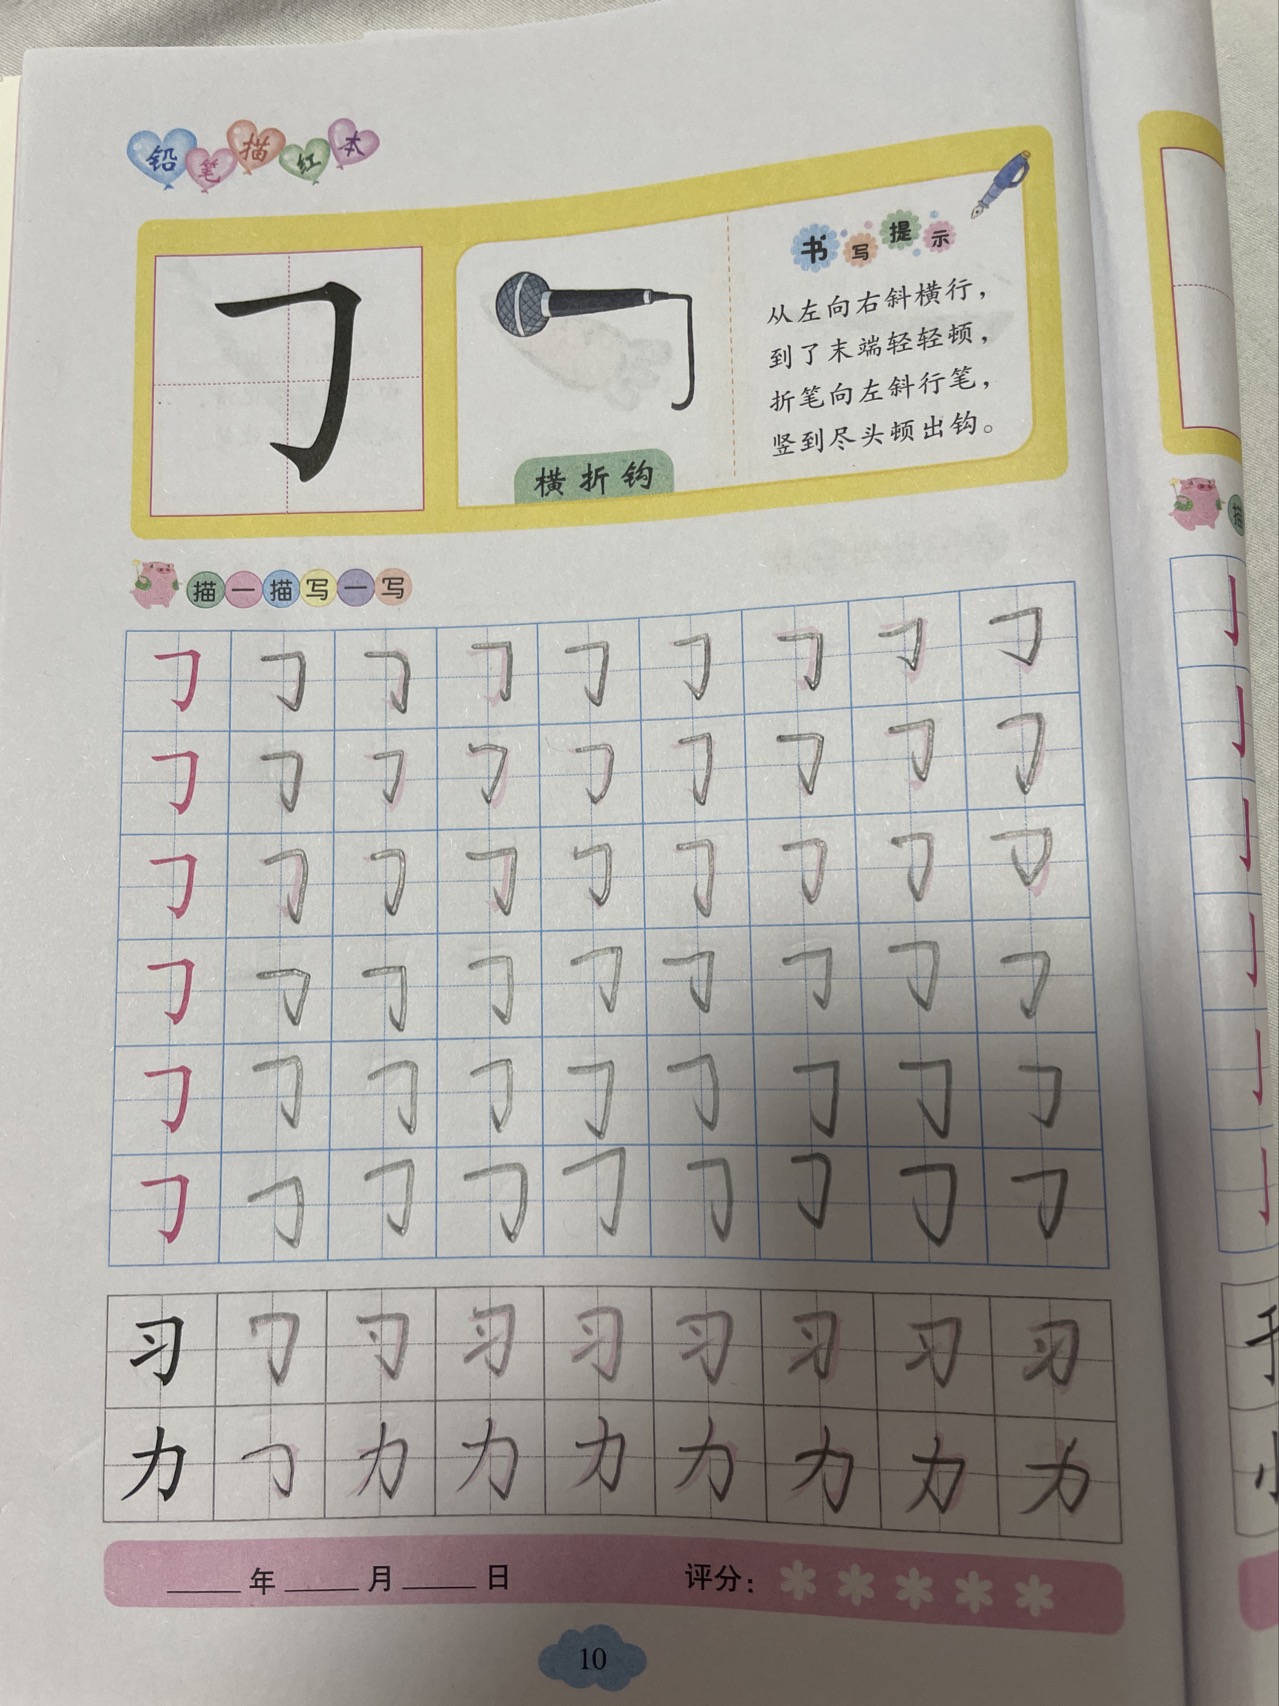 铅笔描红本
书写提示
从左向右斜横行，
到了末端轻轻顿，
折笔向左斜行笔，
竖到尽头顿出钩。
横折钩
描一描写一写
𠃌 𠃌 𠃌 𠃌 𠃌 𠃌 𠃌 𠃌 𠃌
𠃌 𠃌 𠃌 𠃌 𠃌 𠃌 𠃌 𠃌 𠃌
𠃌 𠃌 𠃌 𠃌 𠃌 𠃌 𠃌 𠃌 𠃌
𠃌 𠃌 𠃌 𠃌 𠃌 𠃌 𠃌 𠃌 𠃌
𠃌 𠃌 𠃌 𠃌 𠃌 𠃌 𠃌 𠃌 𠃌
𠃌 𠃌 𠃌 𠃌 𠃌 𠃌 𠃌 𠃌 𠃌
习 𠃌 习 习 习 习 习 习 习
力 𠃌 力 力 力 力 力 力 力
____年____月____日 评分：
10